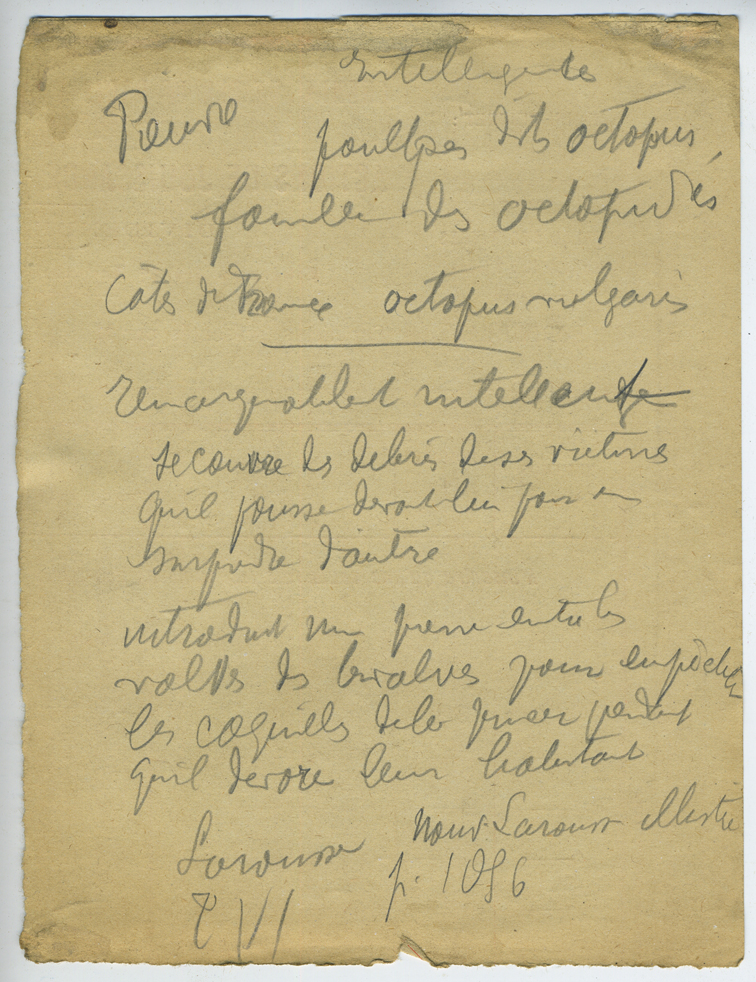 Intelligentes
Pieuvre
poulpes dits octopus
famille des octopidés
Côtes de France octopus vulgaris
remarquablet intelligente
se couvre des debris de ses victimes
qu'il pousse devant lui pour en
surpndre d'autre
introduit une pierre entre les
valves des bivalves pour empêcher
les coquilles de les pincer pendant
qu'il devore leur habitant
Larousse Nouv Larousse illustré
T VI p. 1056